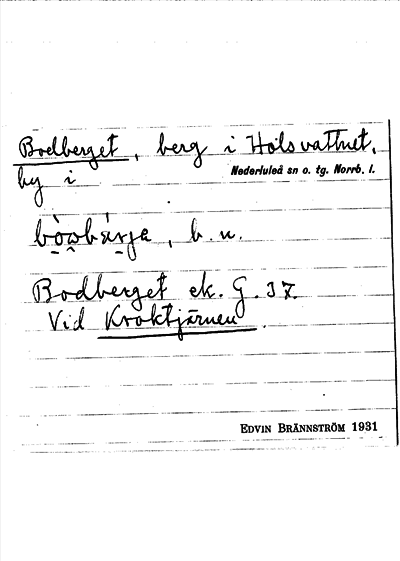 Bodberget, berg i Holsvattnet,
by i Nederluleå sn o. tg. Norrb. l.
, b. n.
Bodberget ek. G. 37.
Vid Kroktjärnen.
EDVIN BRÄNNSTRÖM 1931